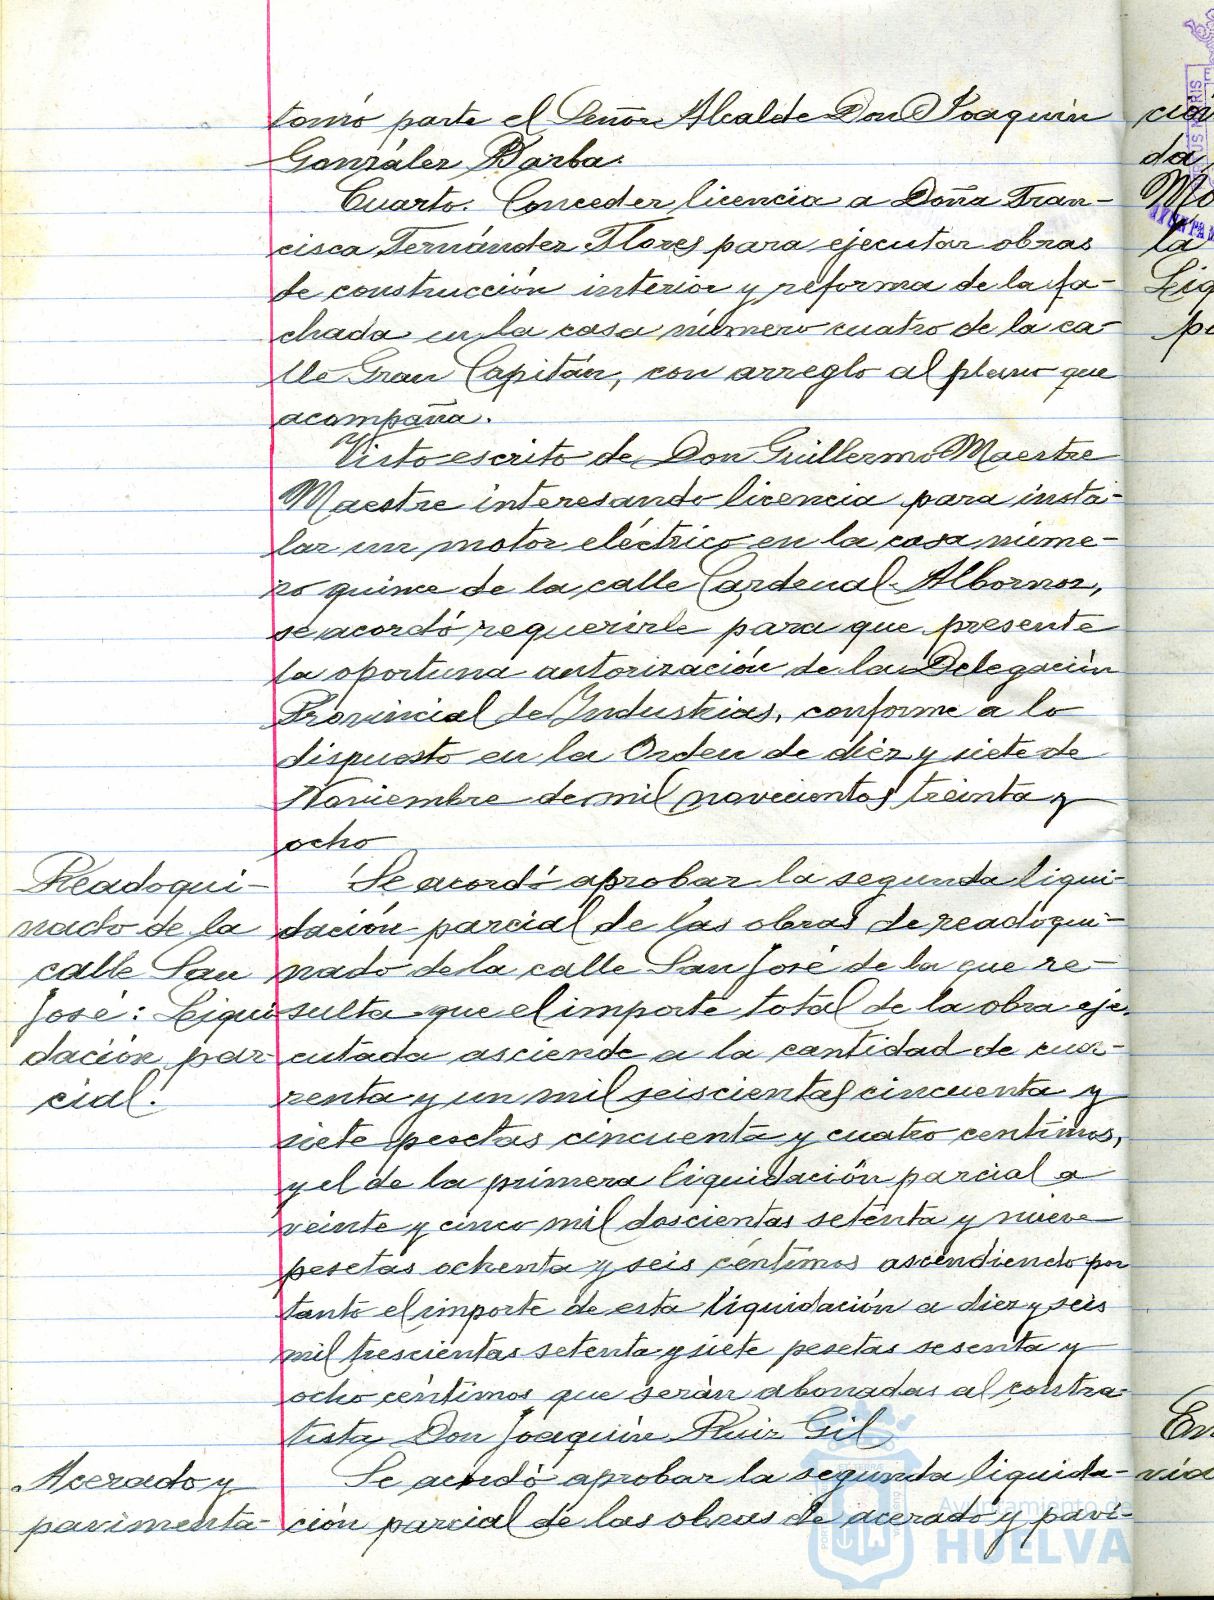 tomó parte el Señor Alcalde Don Joaquín
González Barba.
Cuarto. Conceder licencia a Doña Fran-
cisca Fernández Flores para ejecutar obras
de construcción interior y reforma de la fa-
chada en la casa número cuatro de la ca-
lle Gran Capitán, con arreglo al plano que
acompaña.
Visto escrito de Don Guillermo Maestre
Maestre interesando licencia para insta-
lar un motor eléctrico en la casa núme-
ro quince de la calle Cardenal Albornoz,
se acordó requerirle para que presente
la oportuna autorización de la Delegación
Provincial de Industrias, conforme a lo
dispuesto en la Orden de diez y siete de
Noviembre de mil novecientos treinta y
ocho
Readoqui-
nado de la
calle San
José: Liqui
dación par
cial.
Se acordó aprobar la segunda liqui-
dación parcial de las obras de readoqui-
nado de la calle San José de la que re-
sulta que el importe total de la obra eje-
cutada asciende a la cantidad de cua-
renta y un mil seiscientas cincuenta y
siete pesetas cincuenta y cuatro centimos,
y el de la primera liquidación parcial a
veinte y cinco mil doscientas setenta y nueve
pesetas ochenta y seis céntimos ascendiendo por
tanto el importe de esta liquidación a diez y seis
mil trescientas setenta y siete pesetas sesenta y
ocho céntimos que serán abonadas al contra-
tista Don Joaquín Ruiz Gil
Acerado y
pavimenta-
Se acordó aprobar la segunda liquida-
ción parcial de las obras de acerado y pavi-
Ayuntamiento de
HUELVA